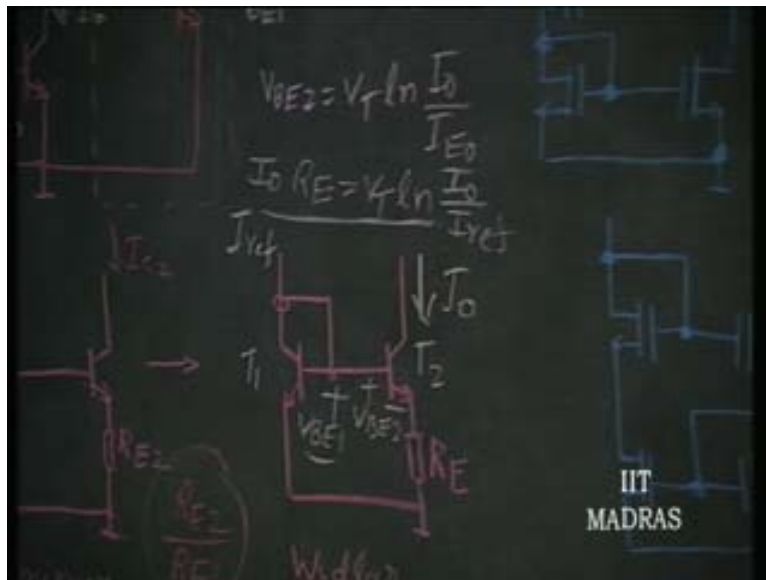 VBE2 = VT ln I0/IE0
I0 RE = VT ln I0/Iref
Iref
I0
IC2
T1
T2
VBE1
+
+
VBE2
-
RE2
RE
RE2/RE1
IIT
MADRAS